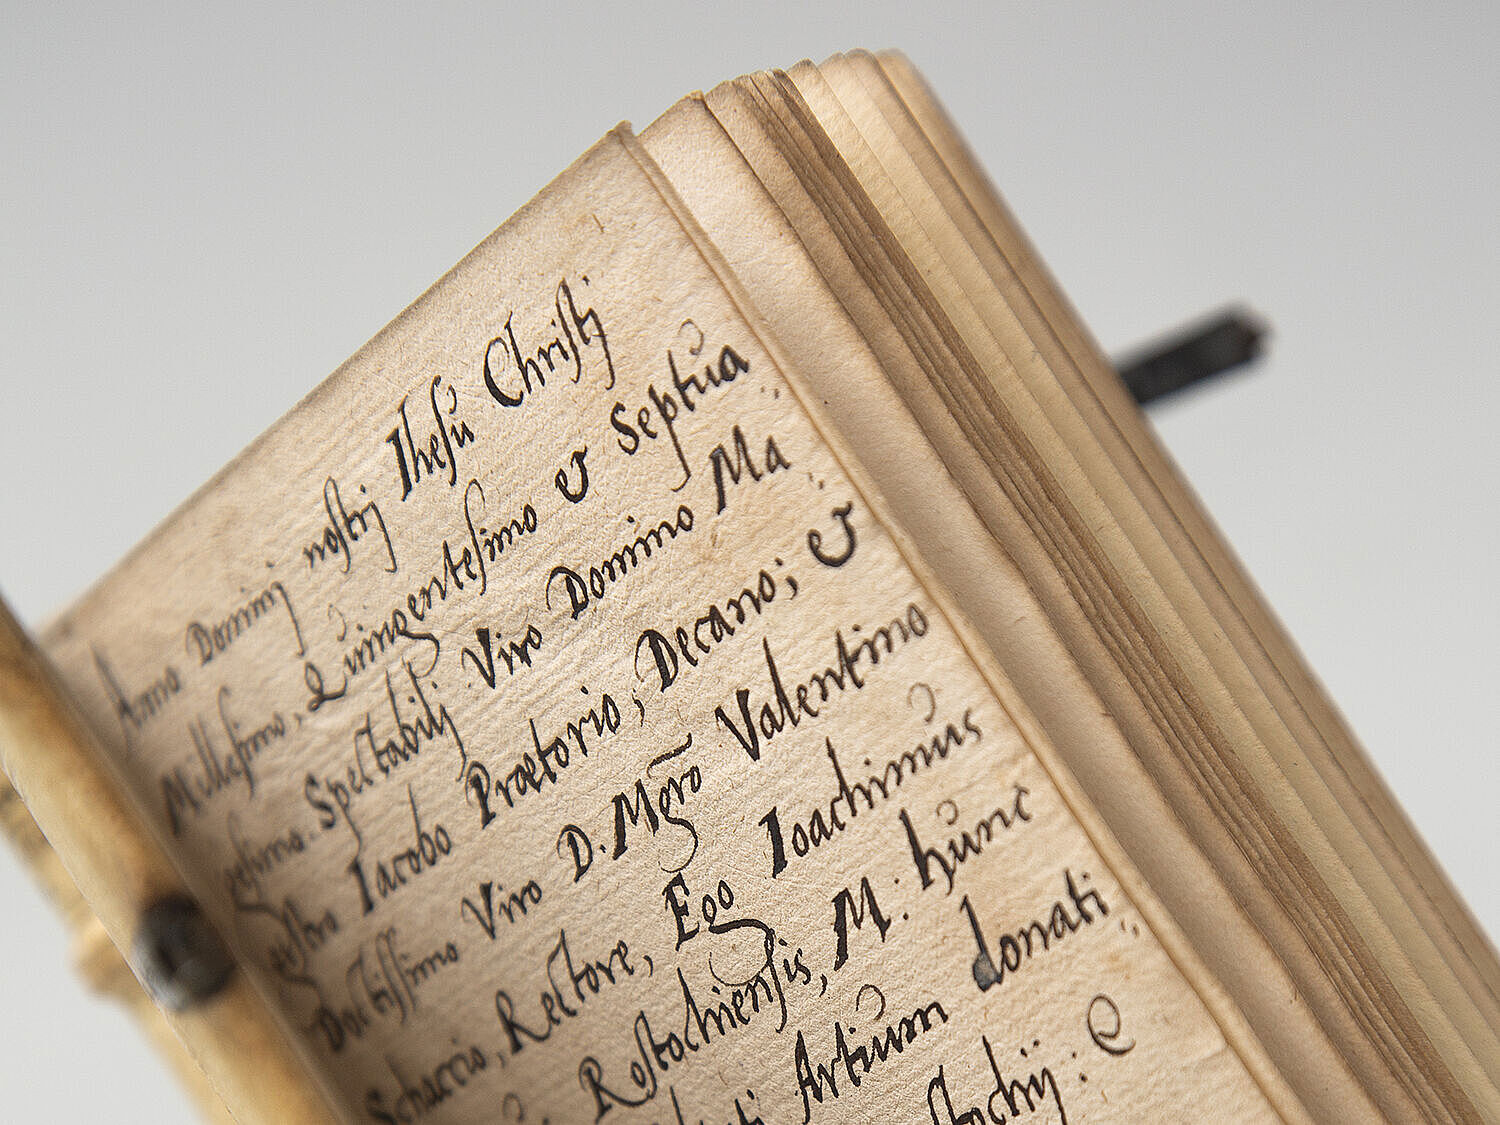 Anno Dominj nostrj Ihesu Christj
Millesimo, Quingentesimo & Septua
gesimo. Spectabilj Viro Domino Ma
gistro Iacobo Prætorio, Decano; &
Doctissimo Viro D. Mgrō Valentino
Schaccio, Rectore, Ego Ioachimus
Rostochiensis, M. hunc
Artium donati